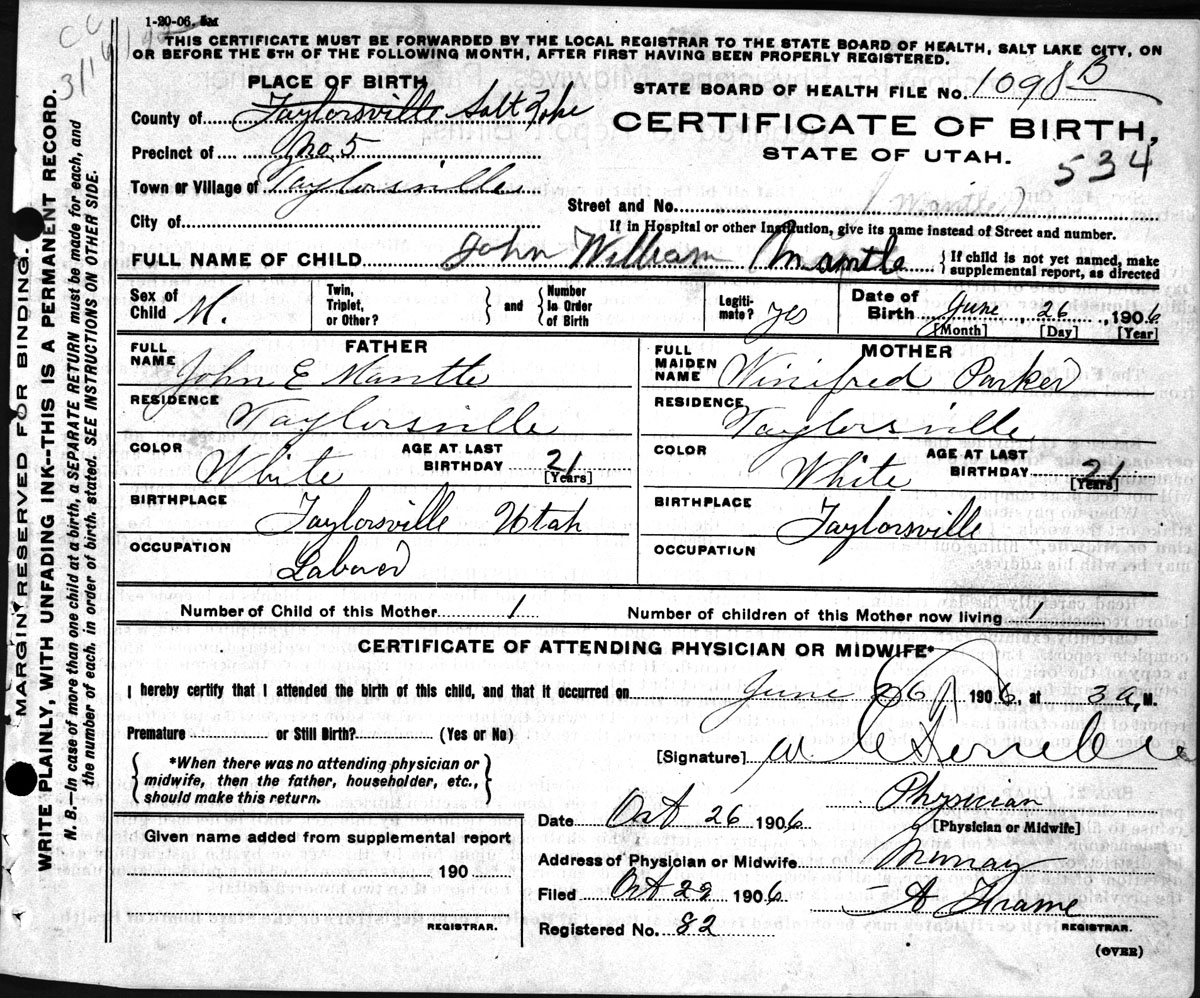 1-20-06. 5M
THIS CERTIFICATE MUST BE FORWARDED BY THE LOCAL REGISTRAR TO THE STATE BOARD OF HEALTH, SALT LAKE CITY, ON
OR BEFORE THE 5TH OF THE FOLLOWING MONTH, AFTER FIRST HAVING BEEN PROPERLY REGISTERED.
PLACE OF BIRTH
STATE BOARD OF HEALTH FILE No. 1098 B
County of Taylorsville Salt Lake
CERTIFICATE OF BIRTH,
STATE OF UTAH.
534
Precinct of No. 5
Town or Village of Taylorsville
Street and No.
(Mantle)
City of
If in Hospital or other Institution, give its name instead of Street and number.
FULL NAME OF CHILD John William Mantle
{ If child is not yet named, make
supplemental report, as directed
Sex of Child M.
Twin, Triplet, or Other?
and
Number in Order of Birth
Legitimate? yes
Date of Birth June, 26, 1906
[Month] [Day] [Year]
FATHER
FULL NAME John E Mantle
RESIDENCE Taylorsville
COLOR White
AGE AT LAST BIRTHDAY 21
[Years]
BIRTHPLACE Taylorsville Utah
OCCUPATION Laborer
MOTHER
FULL MAIDEN NAME Winifred Parker
RESIDENCE Taylorsville
COLOR White
AGE AT LAST BIRTHDAY 21
[Years]
BIRTHPLACE Taylorsville
OCCUPATION
Number of Child of this Mother 1
Number of children of this Mother now living 1
CERTIFICATE OF ATTENDING PHYSICIAN OR MIDWIFE*
I hereby certify that I attended the birth of this child, and that it occurred on June 26, 1906, at 3 a, M.
Premature or Still Birth? (Yes or No)
{ *When there was no attending physician or
midwife, then the father, householder, etc.,
should make this return. }
[Signature]
Physician
[Physician or Midwife]
Date Oct 26 1906
Address of Physician or Midwife Murray
Filed Oct 29 1906
A Frame
REGISTRAR.
Registered No. 82
(OVER)
Given name added from supplemental report
190
REGISTRAR.
MARGIN RESERVED FOR BINDING.
WRITE PLAINLY, WITH UNFADING INK--THIS IS A PERMANENT RECORD.
N. B.—In case of more than one child at a birth, a SEPARATE RETURN must be made for each, and
the number of each, in order of birth, stated. SEE INSTRUCTIONS ON OTHER SIDE.